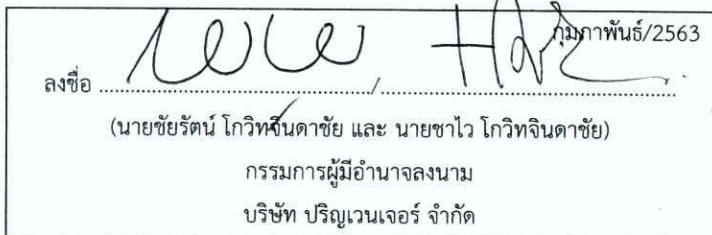 กุมภาพันธ์/2563
ลงชื่อ ................................................/................................................
(นายชัยรัตน์ โกวิทจินดาชัย และ นายชาไว โกวิทจินดาชัย)
กรรมการผู้มีอำนาจลงนาม
บริษัท ปริญเวนเจอร์ จำกัด